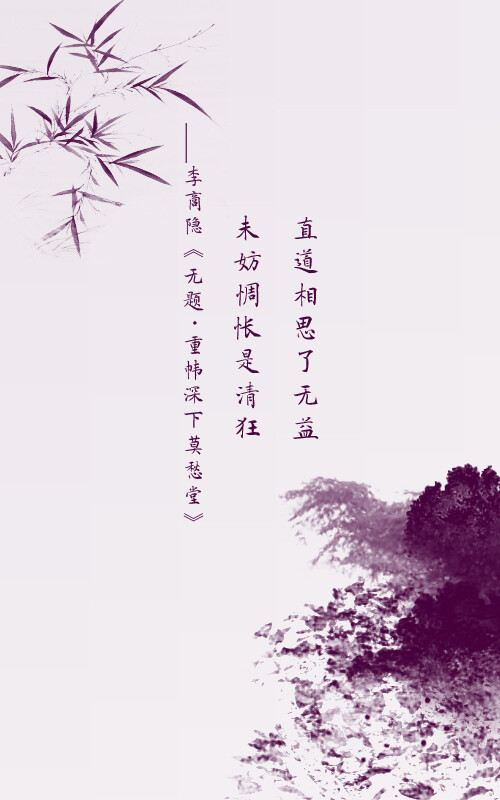 直道相思了无益
未妨惆怅是清狂
——李商隐《无题·重帏深下莫愁堂》